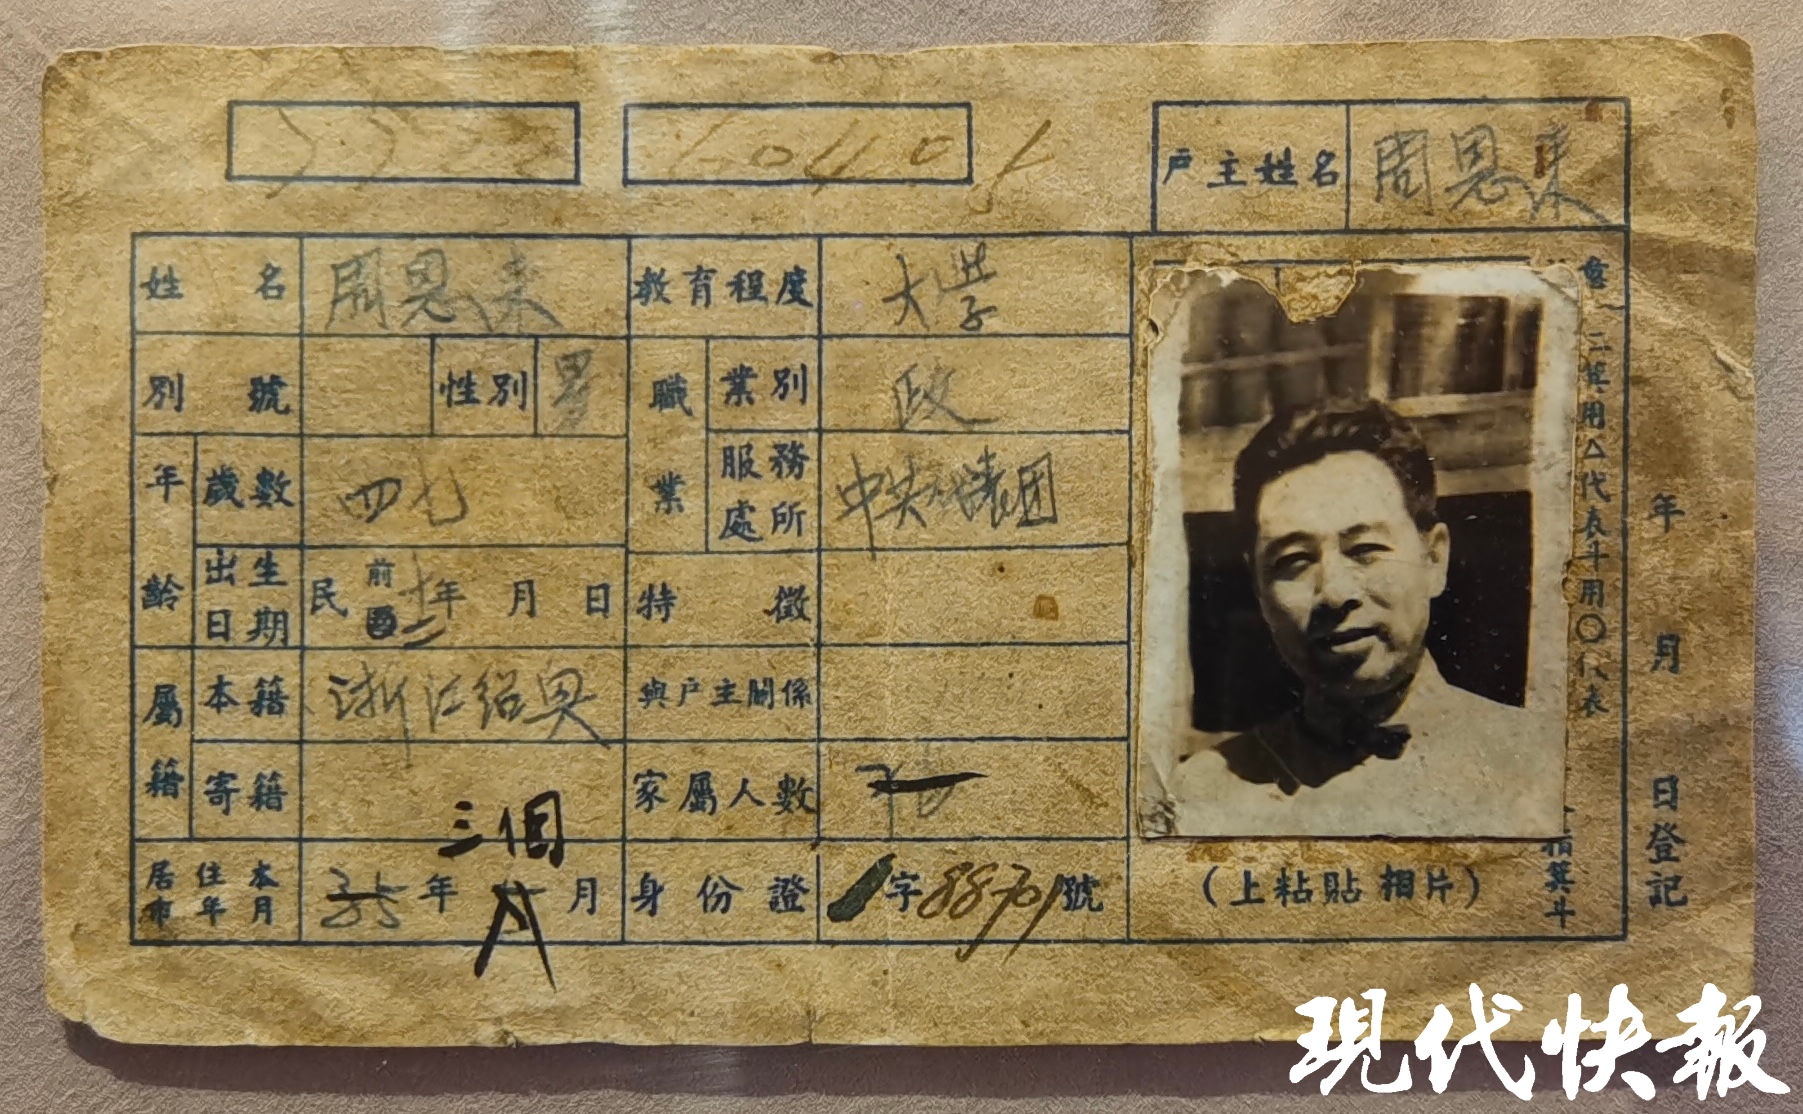 6040.1
戶主姓名 周恩来
姓名 周恩来 教育程度 大學
別號 性別 男 職業 業別 政
年齡 歲數 四七 服務處所 中共代表团
出生日期 民前十二年 月 日 特徵
屬籍 本籍 浙江绍兴 與戶主關係
寄籍 家屬人數
三個
居住本市年月 35年 月 身份證 字88701號
(上粘貼相片)
二箕用△代表斗用〇代表
指箕斗
年 月 日登記
現代快報